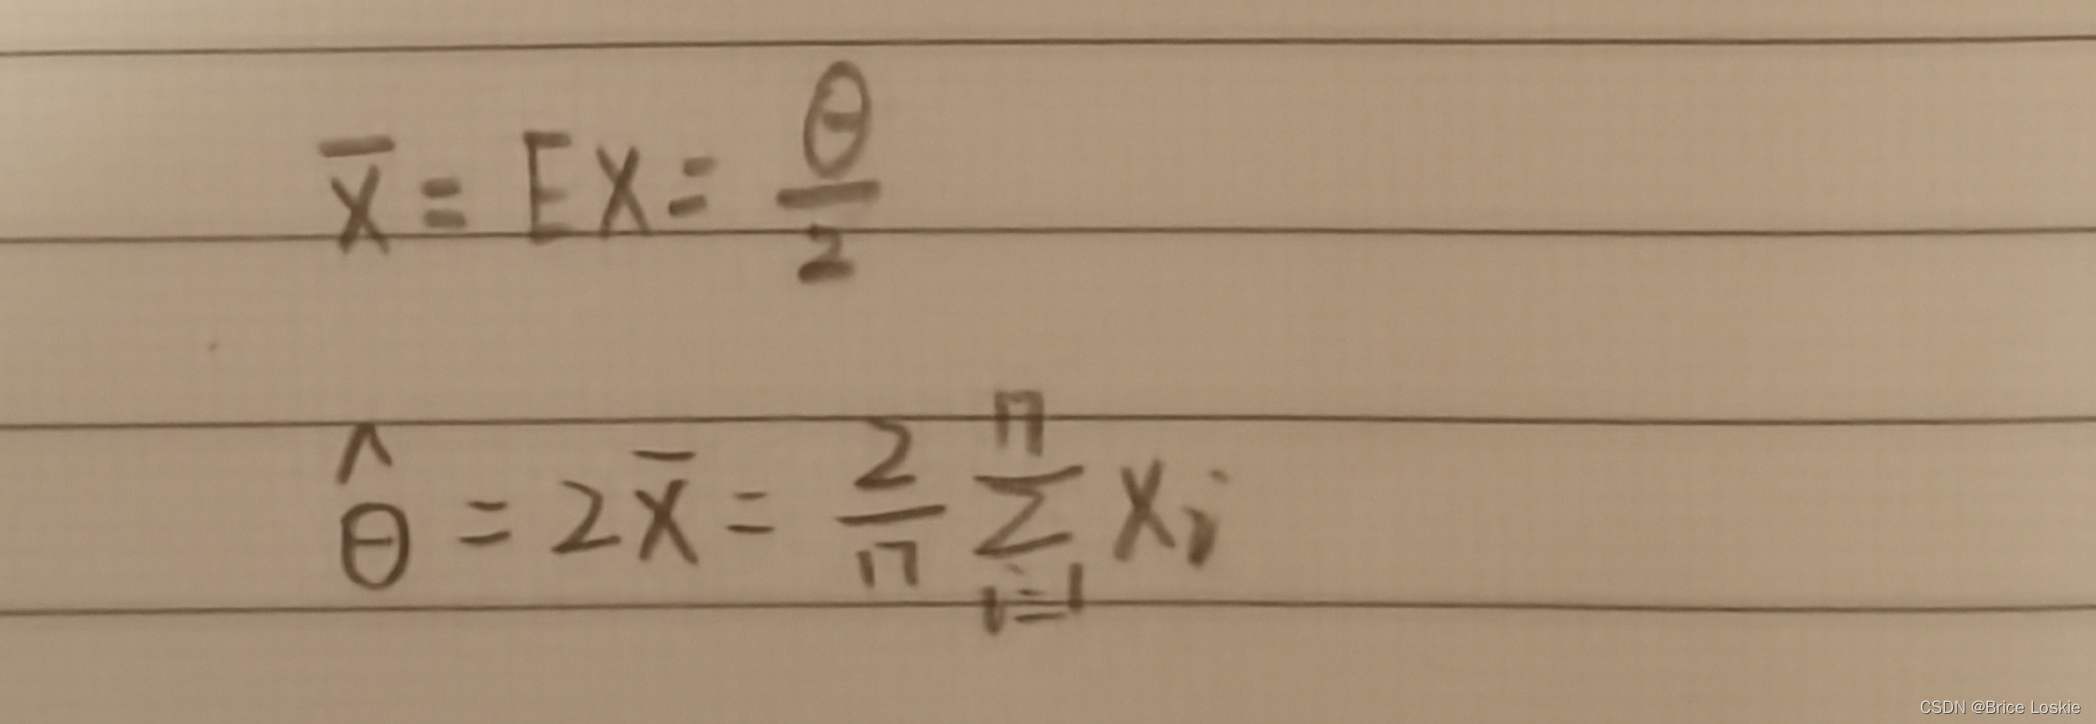 X̄ = EX = θ/2
θ̂ = 2X̄ = 2/n ∑ⁿᵢ₌₁ Xᵢ
CSDN @Brice Loskie